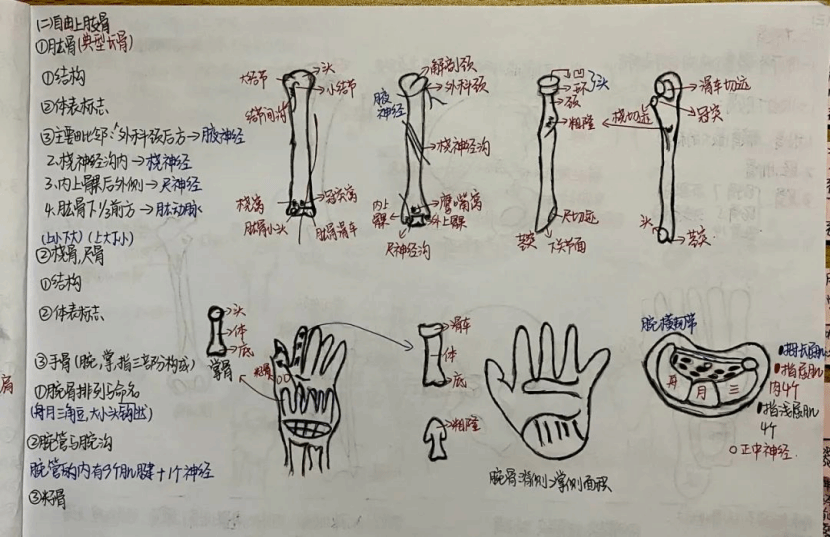 (二)自由上肢骨
①肱骨(典型长骨)
①结构
②体表标志
③主要毗邻:外科颈后方→腋神经
2.桡神经沟内→桡神经
3.内上髁后外侧→尺神经
4.肱骨下1/3前方→肱动脉
(上小下大)(上大下小)
②桡骨,尺骨
①结构
②体表标志
③手骨(腕,掌,指三部分构成)
①腕骨排列与命名
(舟月三角豆,大小头钩)
②腕管与腕沟
腕管内有9个肌腱+1个神经
③籽骨
大结节
头
小结节
结节间沟
桡窝
肱骨小头
冠突窝
肱骨滑车
解剖颈
外科颈
腋神经
桡神经沟
内上髁
鹰嘴窝
外上髁
尺神经沟
凹
环
头
颈
粗隆
尺切迹
茎突
下关节面
滑车切迹
冠突
桡切迹
头
茎突
头
体
底
掌骨
滑车
体
底
粗隆
腕骨:背侧>掌侧面积
腕横韧带
舟
月
三
拇长屈肌
指深屈肌
4个
指浅屈肌
4个
正中神经